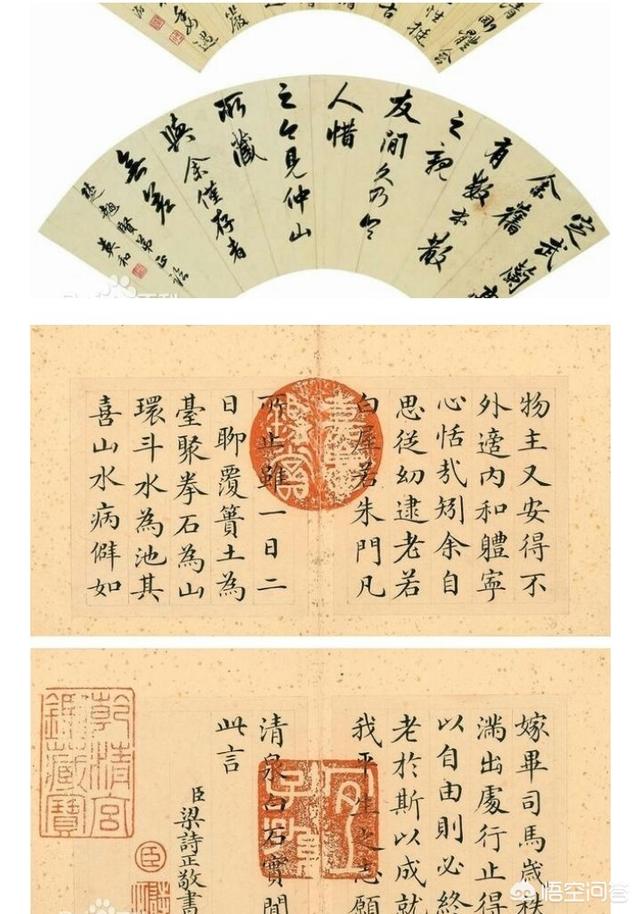 定武蘭
余舊
有數本散
之親
友間久乃
人惜
之今見仲山
所藏
與余僅存者
無差
楚翹賢弟正
英和
物主又安得不
外適內和體寧
心恬哉矧余自
思從幼逮老若
白屋若朱門凡
所止雖一日二
日聊覆簣土為
臺聚拳石為山
環斗水為池其
喜山水病僻如
嫁畢司馬歲秩
滿出處行止得
以自由則必終
老於斯以成就
我平生之志願
清泉白石實聞
此言
臣梁詩正敬書
臣
乾清宮
鑑藏寶
悟空问答